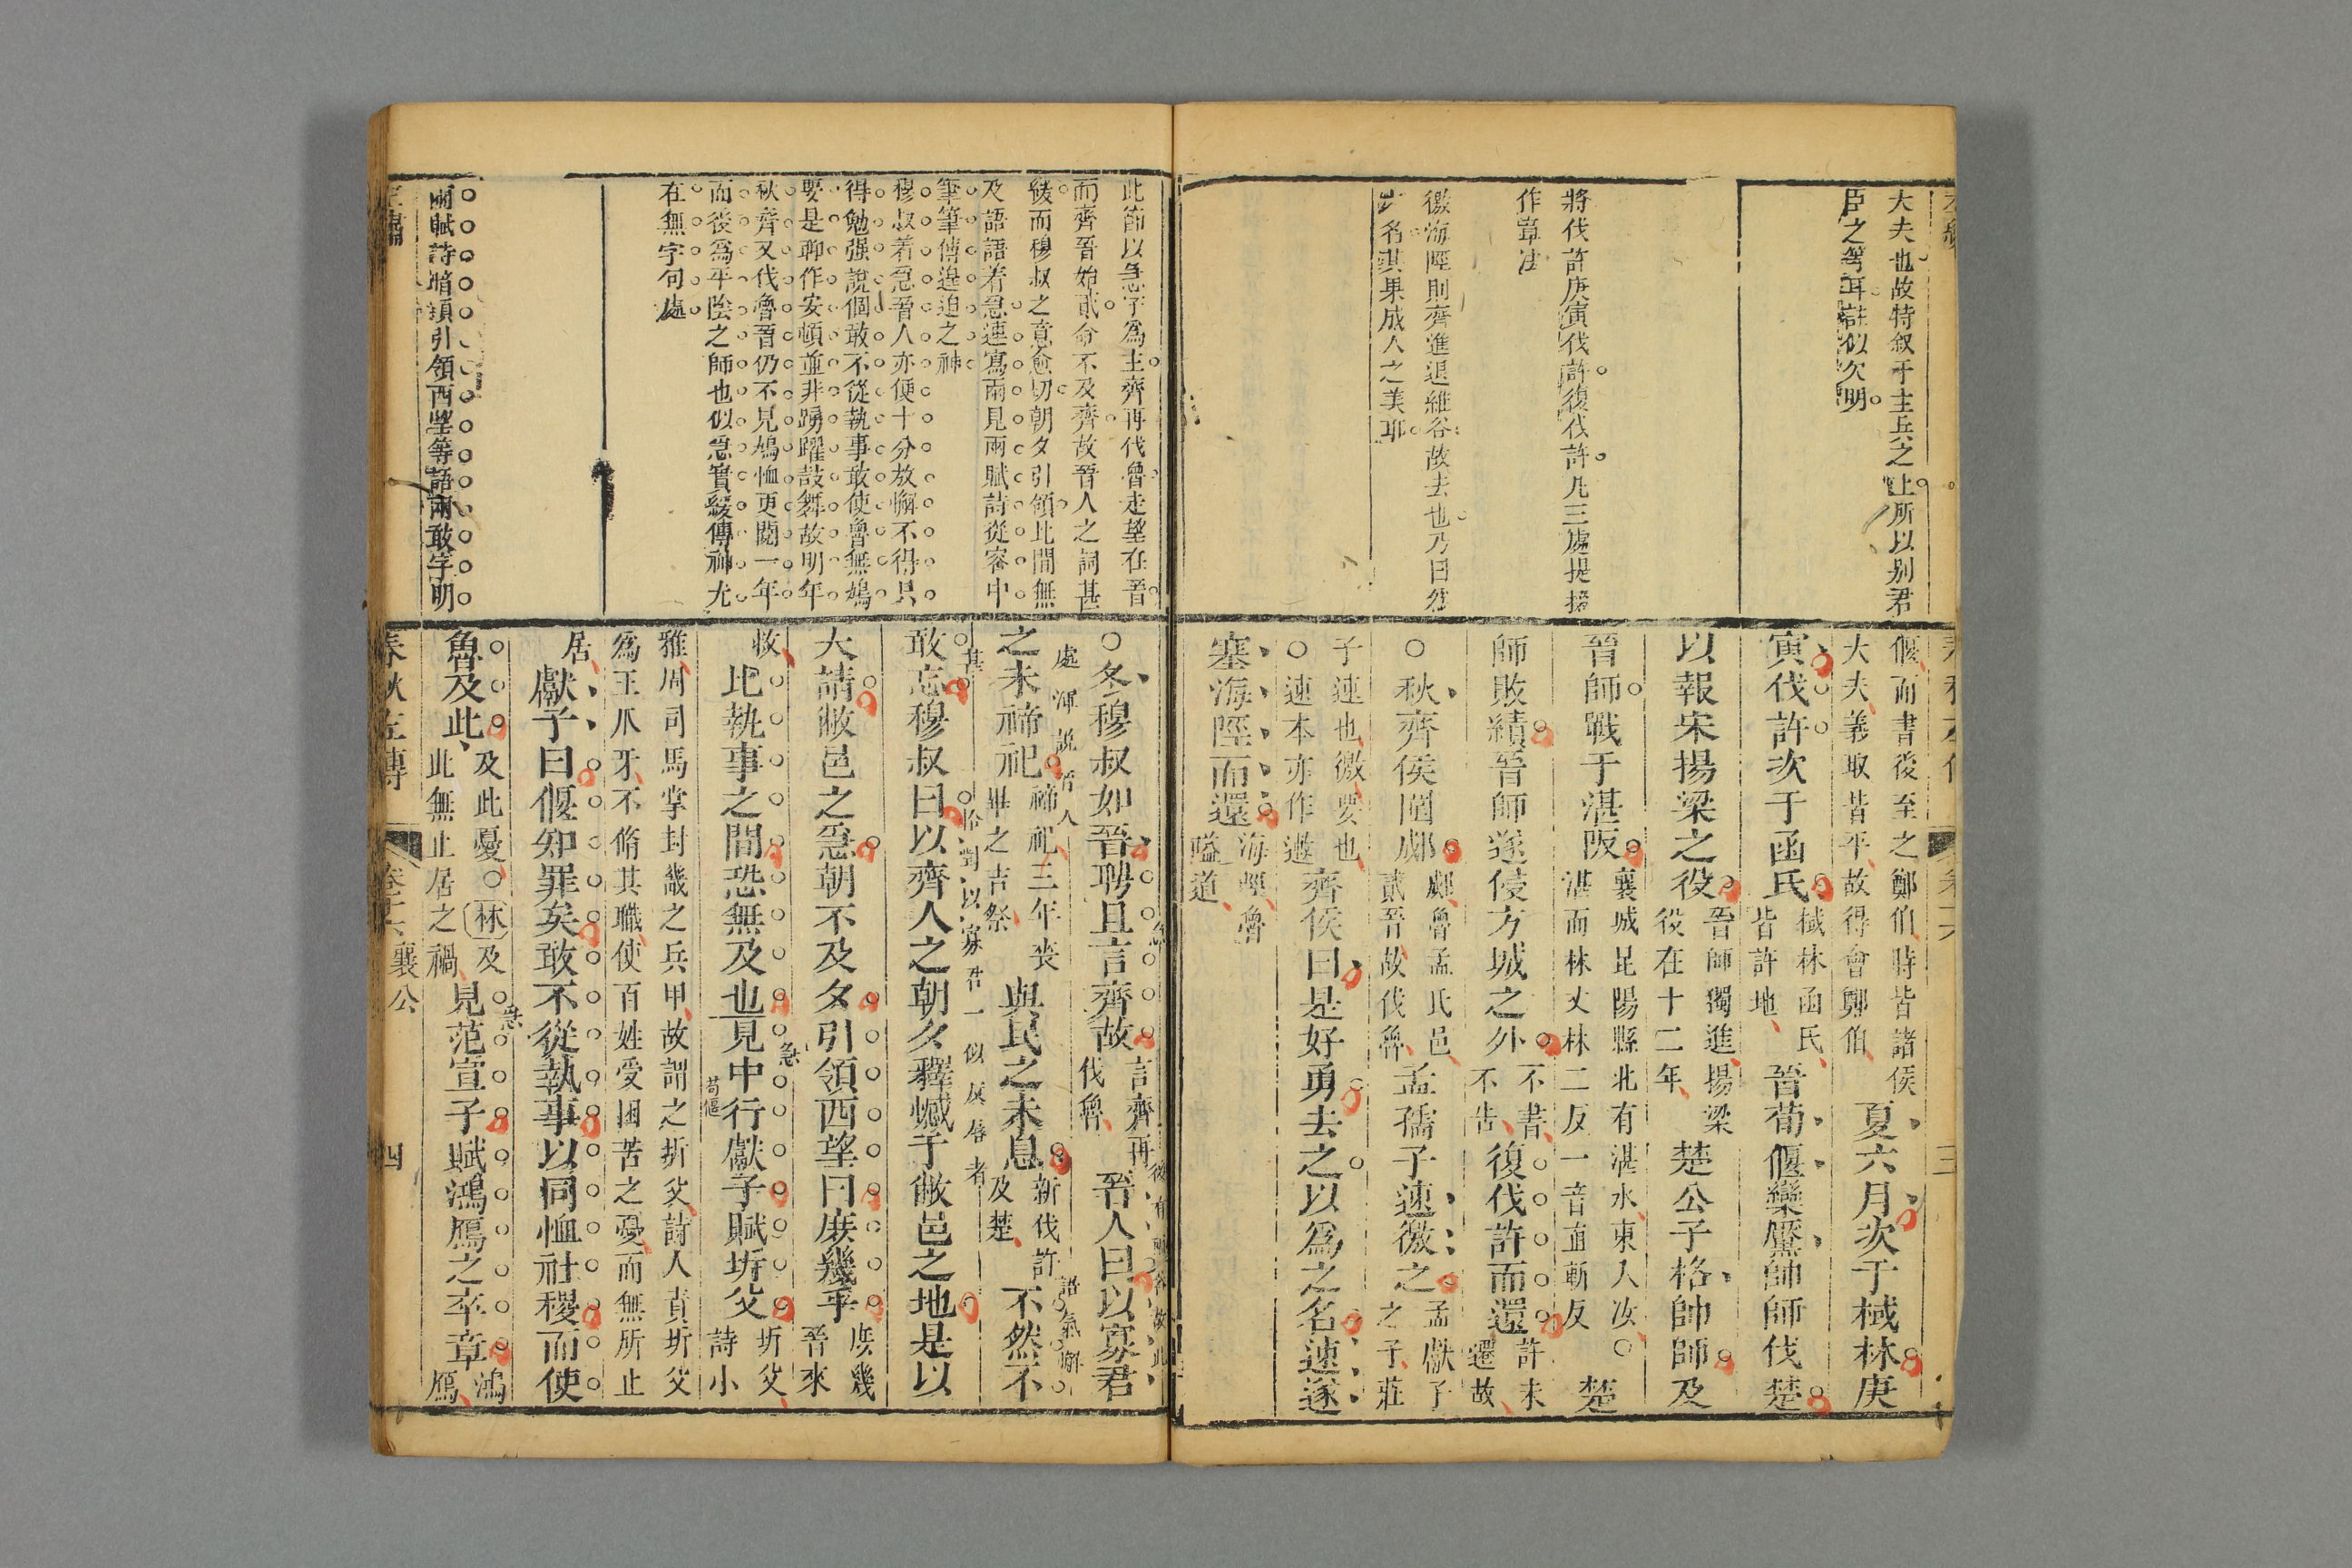 大夫也故特叙于主兵之上所以别君
臣之等耳註似欠明
將伐許庚寅伐許復伐許凡三處提掇
作章法
徼海陘則齊進退維谷故去也乃曰爲
之名其果成人之美耶
偃而書後至之鄭伯時皆諸侯
大夫義取皆平故得會鄭伯
夏六月次于棫林庚
寅伐許次于函氏
棫林函氏
皆許地
晉荀偃欒黶帥師伐楚
以報宋揚梁之役
晉師獨進揚梁
役在十二年
楚公子格帥師及
晉師戰于湛阪
襄城昆陽縣北有湛水東入汝○
湛而林丈林二反一音直斬反
楚
師敗績晉師遂侵方城之外
不書
不告
復伐許而還
許未
遷故
○秋齊侯圍郕
郕魯孟氏邑
貳晉故伐魯
孟孺子速徼之
孟獻子
之子莊
子速也徼要也
○速本亦作遬
齊侯曰是好勇去之以爲之名速遂
塞海陘而還
海陘魯
隘道
此節以急字爲主齊再伐魯走望在晉
而齊晉始貳命不及齊故晉人之詞甚
緩而穆叔之意愈切朝夕引領比間無
及語語着急連寫兩見兩賦詩從容中
筆筆傳遑迫之神
穆叔着急晉人亦便十分放懈不得只
得勉强說個敢不從執事敢使魯無鳩
要是聊作安頓並非踴躍鼓舞故明年
秋齊又伐魯晉仍不見鳩恤更閱一年
而後爲平陰之師也似急實緩傳神尤
在無字句處
兩賦詩暗頂引領西望等語兩敢字明
○冬穆叔如晉聘且言齊故
言齊再
伐魯
晉人曰以寡君
之未禘祀
禘祀三年喪
畢之吉祭
與民之未息
新伐許
及楚
不然不
敢忘穆叔曰以齊人之朝夕釋憾于敝邑之地是以
大請敝邑之急朝不及夕引領西望曰庶幾乎
庶幾
晉來
救
比執事之間恐無及也見中行獻子賦圻父
荀偃
圻父
詩小
雅周司馬掌封畿之兵甲故謂之圻父詩人責圻父
爲王爪牙不脩其職使百姓受困苦之憂而無所止
居
獻子曰偃知罪矣敢不從執事以同恤社稷而使
魯及此
及此憂○林及
此無止居之禍
見范宣子賦鴻鴈之卒章
鴻
鴈
春秋左傳
卷十六
襄公
四